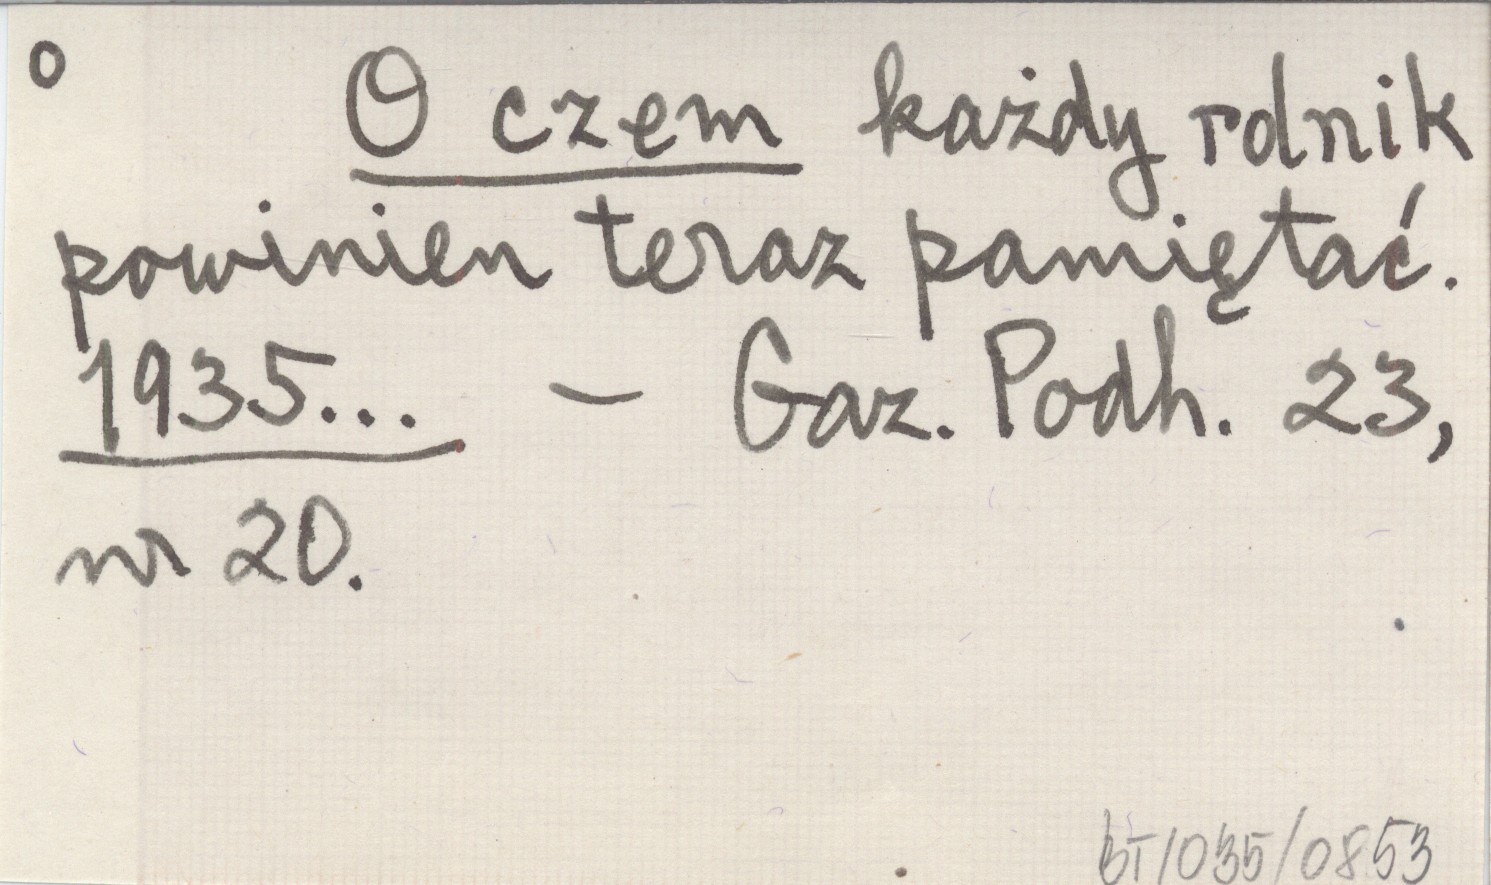 o O czem każdy rolnik
powinien teraz pamiętać.
1935... – Gaz. Podh. 23,
nr 20.
BT/035/0853